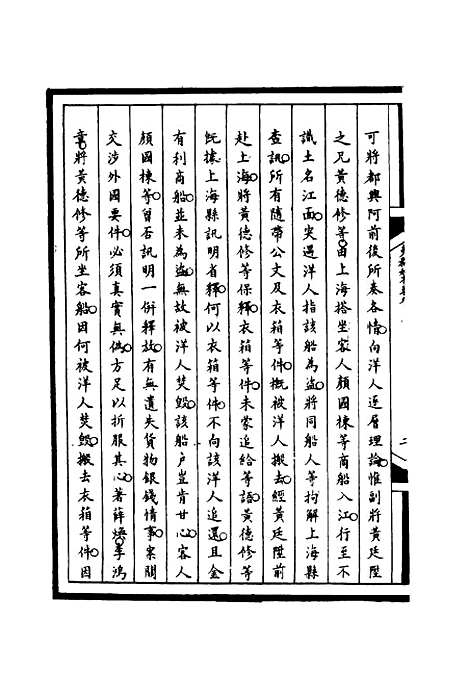 可將都興阿前後所奏各情向洋人逐層理論惟副將黃廷陞
之兄黃德修等由上海搭坐客人顏國棟等商船入江行至不
識土名江面突遇洋人指該船為盜將同船人等拘解上海縣
查訊所有隨帶公文及衣箱等件概被洋人搬去經黃廷陞前
赴上海將黃德修等保釋衣箱等件未蒙追給等語黃德修等
既據上海縣訊明省釋何以衣箱等件不向該洋人追還且金
有利商船並未為盜無故被洋人焚毀該船戶豈肯甘心客人
顏國棟等曾否訊明一併釋放有無遺失貨物銀錢情事案關
交涉外國要件必須真實無偽方足以折服其心著薛煥李鴻
章將黃德修等所坐客船因何被洋人焚毀搬去衣箱等件因
二